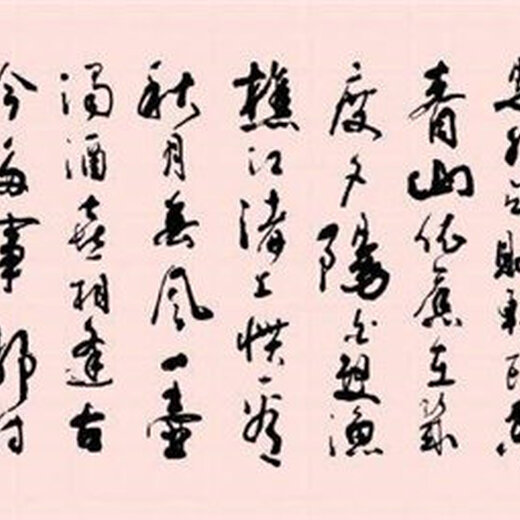 青山依舊在幾
度夕陽紅白髮漁
樵江渚上慣看
秋月春風一壺
濁酒喜相逢古
今多少事都付